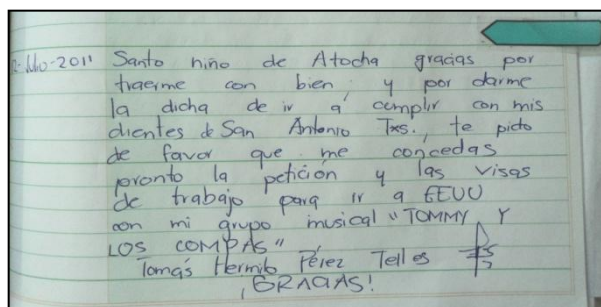 -Julio-2011 Santo niño de Atocha gracias por
traerme con bien, y por darme
la dicha de ir a cumplir con mis
clientes de San Antonio Txs., te pido
de favor que me concedas
pronto la petición y las visas
de trabajo para ir a EEUU
con mi grupo musical "TOMMY Y
LOS COMPAS"
Tomás Hermilo Pérez Telles
¡GRACIAS!